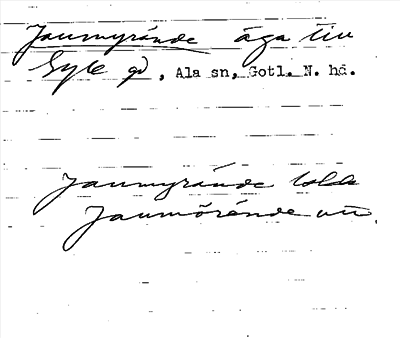 Jaumyrände äga till
Sylle gd, Ala sn, Gotl. N. hd.
Jaumyrände
Jaumörände